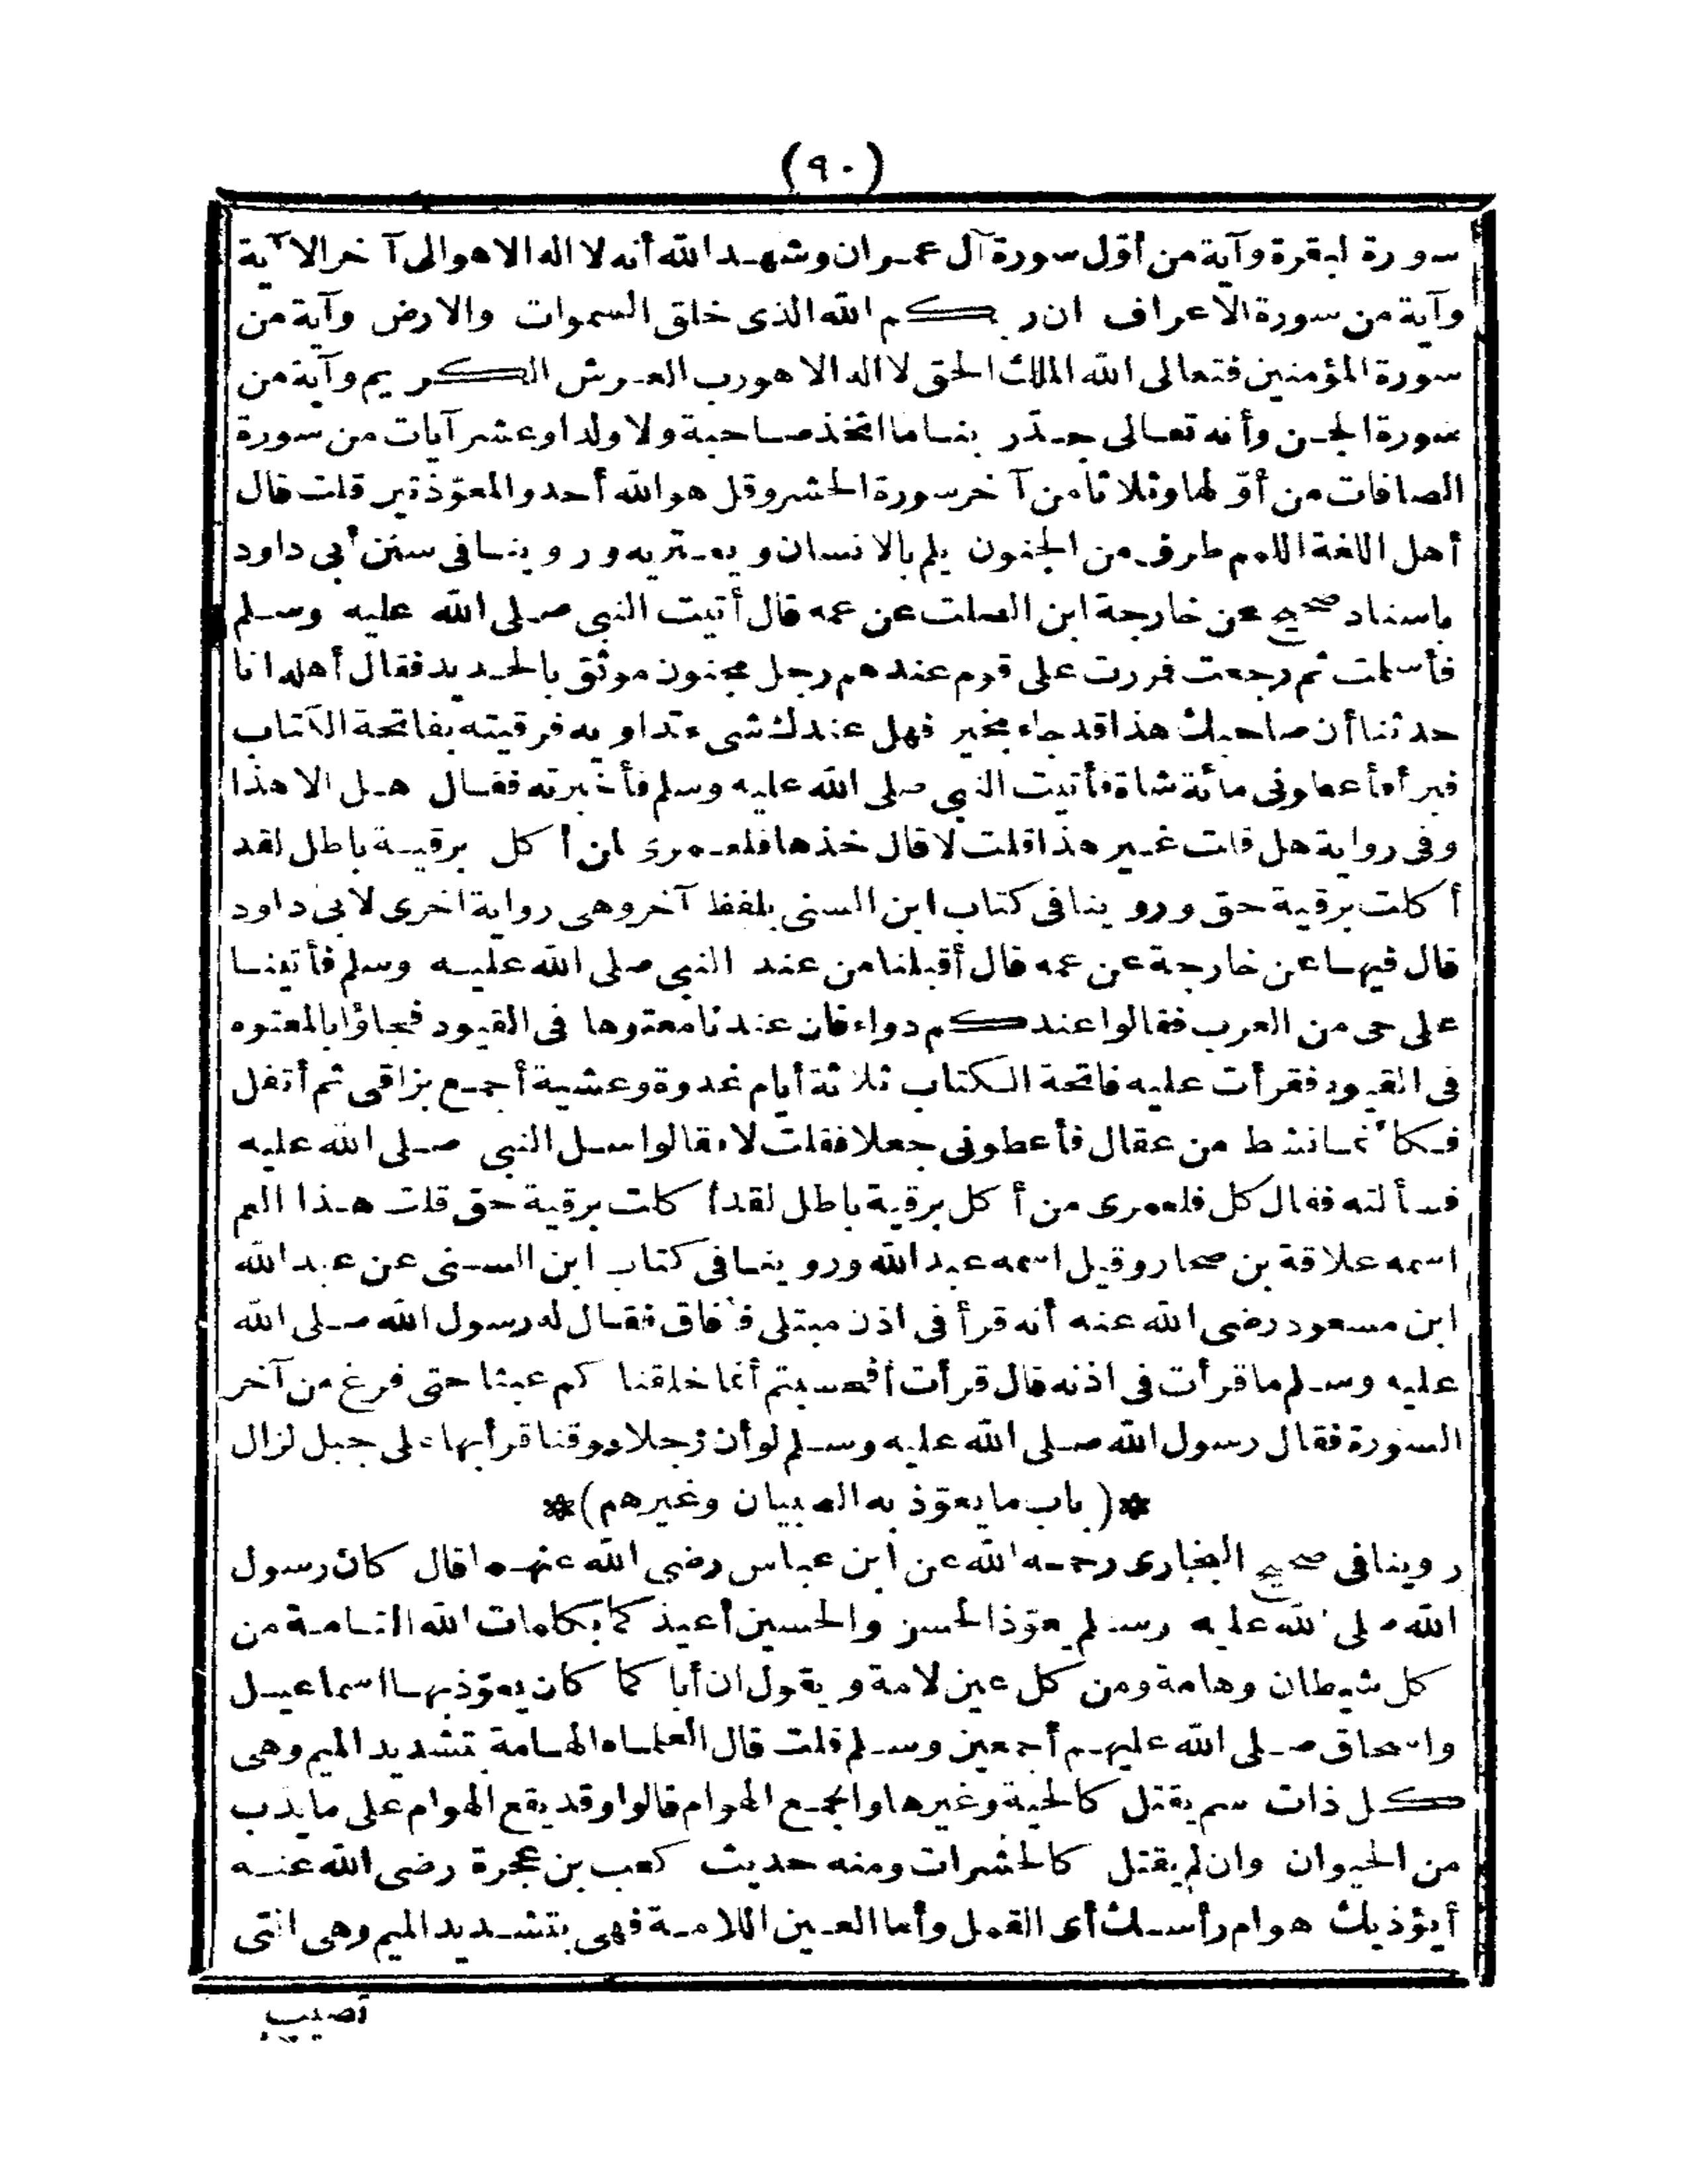 (٩٠)
سورة البقرة وآية من أوّل سورة آل عمران وشهد الله أنه لا اله الا هو الى آخر الآية
وآية من سورة الاعراف ان ربكم الله الذى خلق السموات والارض وآية من
سورة المؤمنين فتعالى الله الملك الحق لا اله الا هو رب العرش الكريم وآية من
سورة الجن وأنه تعالى جدّ ربنا ما اتخذ صاحبة ولا ولدا وعشر آيات من سورة
الصافات من أوّلها وثلاثا من آخر سورة الحشر وقل هو الله أحد والمعوّذتين قلت قال
أهل اللغة اللمم طرف من الجنون يلم بالانسان ويعتريه وروينا فى سنن أبى داود
باسناد صحيح عن خارجة ابن الصلت عن عمه قال أتيت النبى صلى الله عليه وسلم
فأسلمت ثم رجعت فمررت على قوم عندهم رجل مجنون موثق بالحديد فقال أهله انا
حدثنا أن صاحبك هذا قد جاء بخير فهل عندك شىء تداويه فرقيته بفاتحة الكتاب
فبرأ فأعطونى مائة شاة فأتيت النبى صلى الله عليه وسلم فأخبرته فقال هل الا هذا
وفى رواية هل قلت غير هذا قلت لا قال خذها فلعمرى لمن أكل برقية باطل لقد
أكلت برقية حق وروينا فى كتاب ابن السنى بلفظ آخر وهى رواية اخرى لابى داود
قال فيها عن خارجة عن عمه قال أقبلنا من عند النبى صلى الله عليه وسلم فأتينا
على حى من العرب فقالوا عندكم دواء فان عندنا معتوها فى القيود فجاؤا بالمعتوه
فى القيود فقرأت عليه فاتحة الكتاب ثلاثة أيام غدوة وعشية أجمع بزاقى ثم أتفل
فكأنما نشط من عقال فأعطونى جعلا فقلت لا فقالوا سل النبى صلى الله عليه
فسألته فقال كل فلعمرى من أكل برقية باطل لقد أكلت برقية حق قلت هذا العم
اسمه علاقة بن صحار وقيل اسمه عبد الله وروينا فى كتاب ابن السنى عن عبد الله
ابن مسعود رضى الله عنه أنه قرأ فى اذن مبتلى فأفاق فقال له رسول الله صلى الله
عليه وسلم ما قرأت فى اذنه قال قرأت أفحسبتم أنما خلقناكم عبثا حتى فرغ من آخر
السورة فقال رسول الله صلى الله عليه وسلم لو أن رجلا موقنا قرأ بها على جبل لزال
*(باب ما يعوّذ به الصبيان وغيرهم)*
روينا فى صحيح البخارى رحمه الله عن ابن عباس رضى الله عنهما قال كان رسول
الله صلى الله عليه وسلم يعوّذ الحسن والحسين أعيذكما بكلمات الله التامة من
كل شيطان وهامة ومن كل عين لامة ويقول ان أباكما كان يعوّذ بها اسماعيل
واسحاق صلى الله عليهم أجمعين وسلم قلت قال العلماء الهامة بتشديد الميم وهى
كل ذات سم يقتل كالحية وغيرها والجمع الهوام قالوا وقد يقع الهوام على ما يدب
من الحيوان وان لم يقتل كالحشرات ومنه حديث كعب بن عجرة رضى الله عنه
أيؤذيك هوام رأسك أى القمل وأما العين اللامة فهى بتشديد الميم وهى التى
تصيب